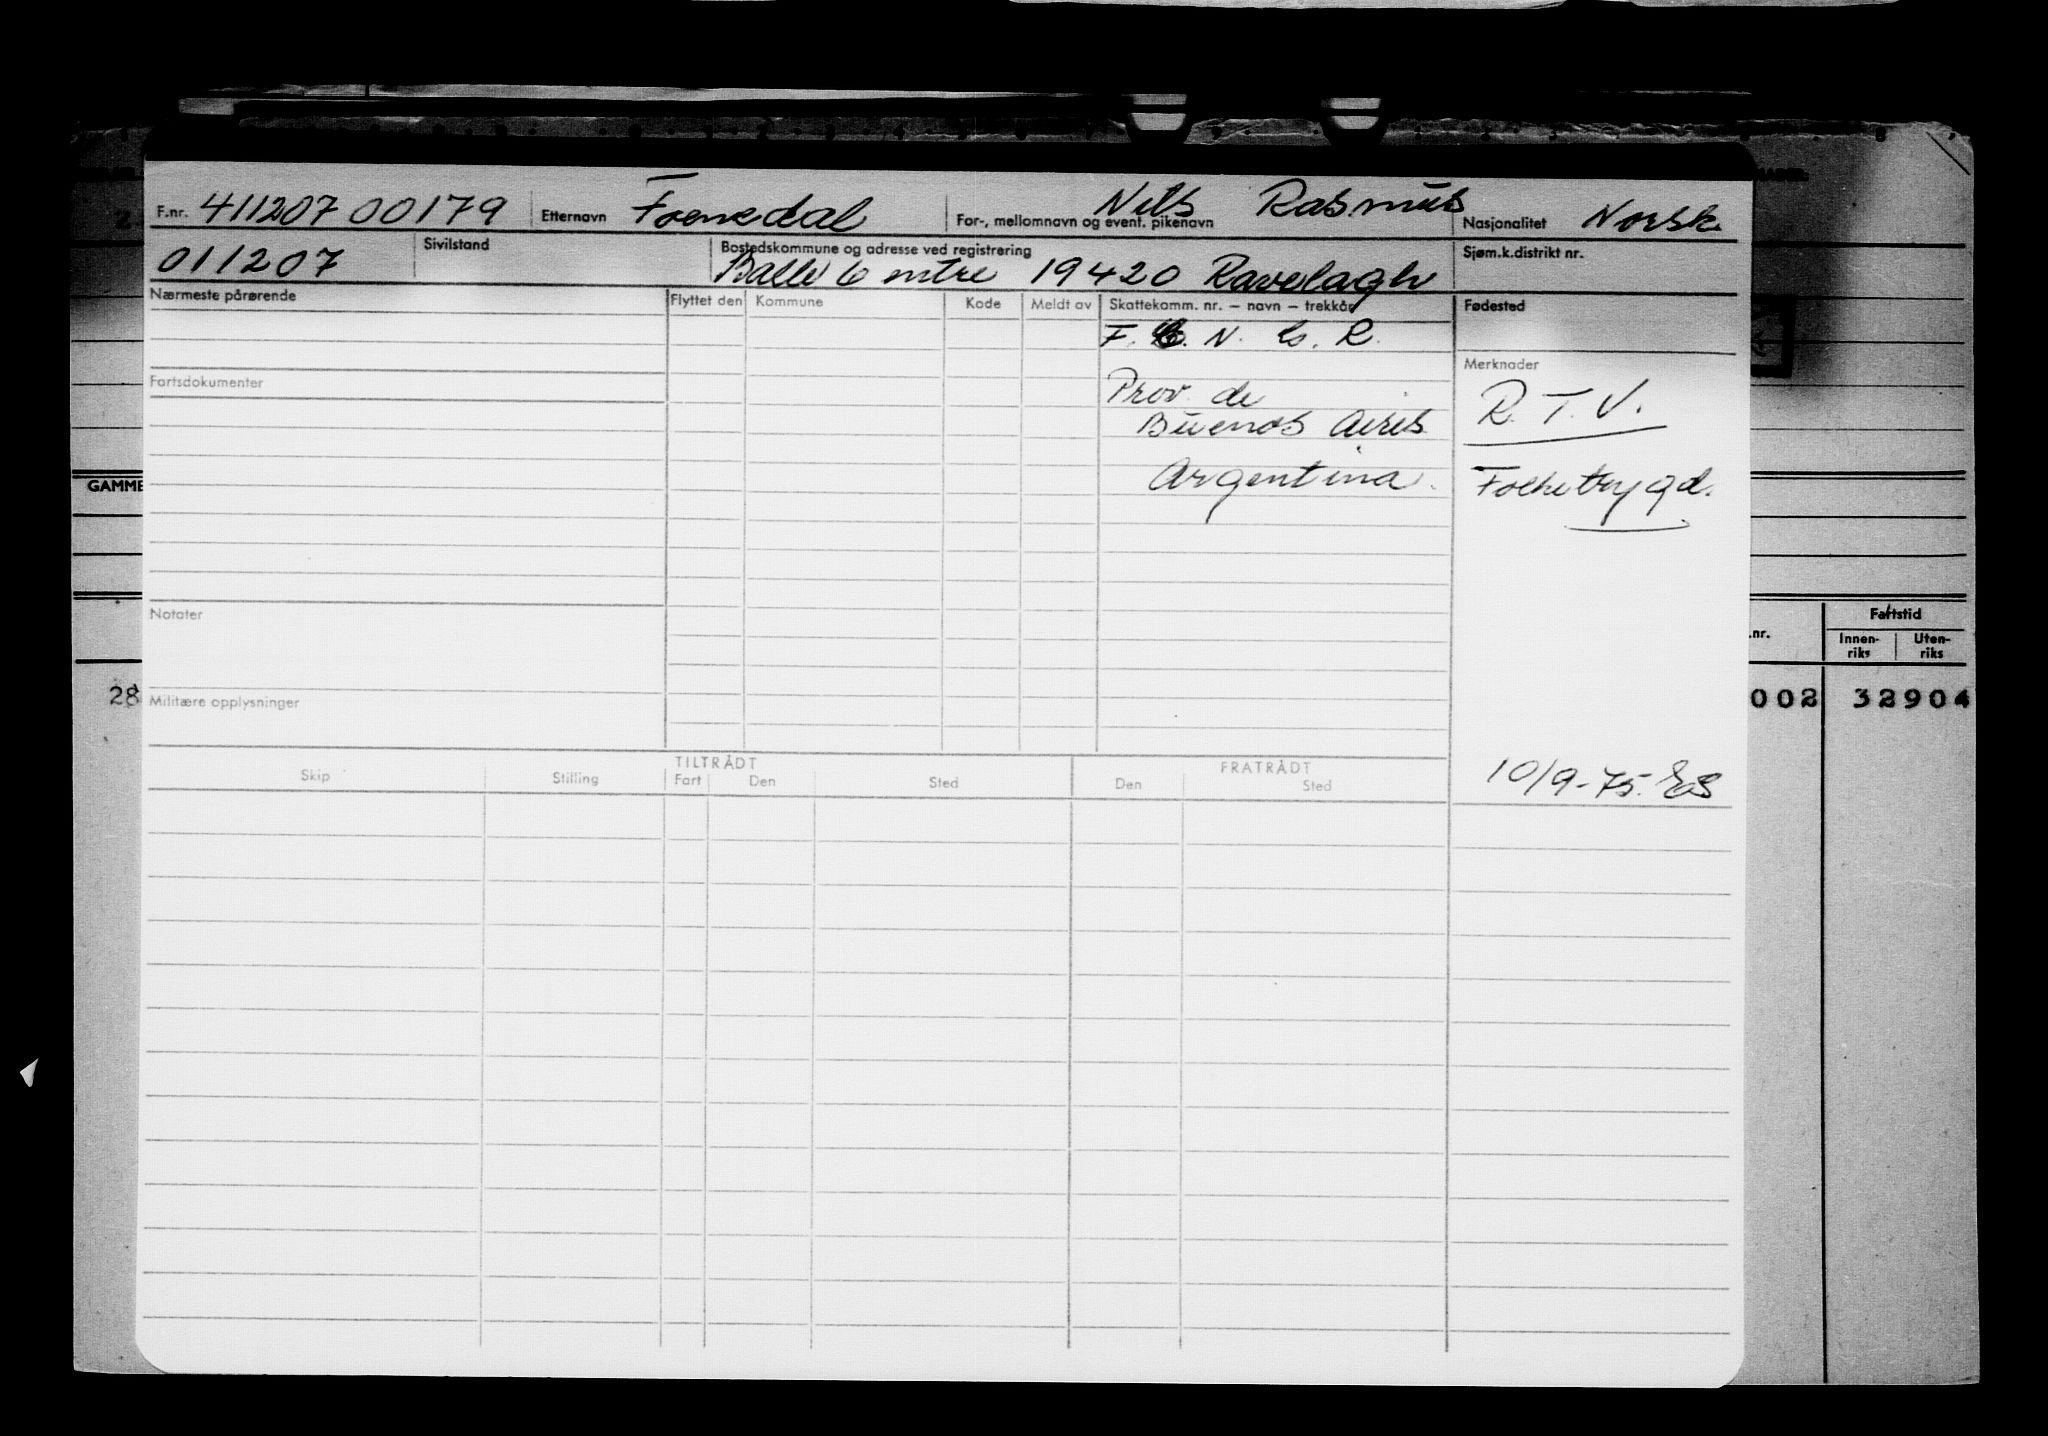 F.nr. 411207 00179 Etternavn Foenedal For-, mellomnavn og event. pikenavn Nils Rasmus Nasjonalitet Norsk
011207 Sivilstand Bostedskommune og adresse ved registrering Balle 6 entre 19420 Ravelagh Sjøm.k.distrikt nr.
Nærmeste pårørende Flyttet den Kommune Kode Meldt av Skattekomm. nr. – navn – trekkår Fødested
F. C. N. G. R.
Merknader
Fartsdokumenter
Prov. de
R. T. V.
Buenos Aires
Argentina.
Folketrygd.
GAMME
Notater
Fartstid
.nr. Innen-riks Uten-riks
28 Militære opplysninger 002 32904
TILTRÅDT FRATRÅDT
Skip Stilling Fart Den Sted Den Sted
10/9-75. ES